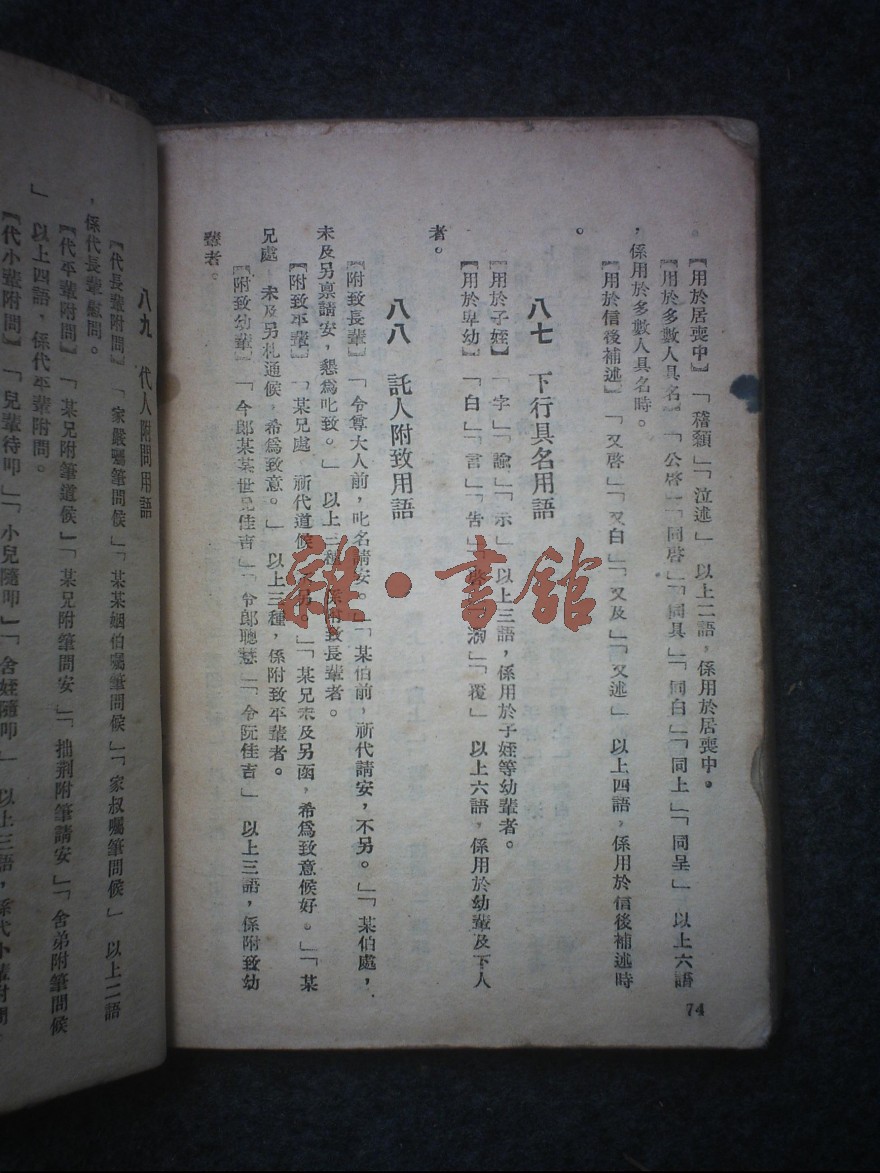 【用於居喪中】「稽顙」「泣述」　以上二語，係用於居喪中。
【用於多數人具名】「公啓」「同啓」「同具」「同白」「同上」「同呈」　以上六語
，係用於多數人具名時。
【用於信後補述】「又啓」「又白」「又及」「又述」　以上四語，係用於信後補述時
。
八七　下行具名用語
【用於子姪】「字」「諭」「示」　以上三語，係用於子姪等幼輩者。
【用於卑幼】「白」「言」「告」「啓」「泐」「覆」　以上六語，係用於幼輩及下人
者。
八八　託人附致用語
【附致長輩】「令尊大人前，叱名請安。」「某伯前，祈代請安，不另。」「某伯處，
未及另禀請安，懇爲叱致。」　以上三種，係附致長輩者。
【附致平輩】「某兄處，祈代道候，不另。」「某兄未及另函，希爲致意候好。」「某
兄處，未及另札通候，希爲致意。」　以上三種，係附致平輩者。
【附致幼輩】「令郎某某世兄佳吉」「令郎聰慧」「令阮佳吉」　以上三語，係附致幼
輩者。
74
八九　代人附問用語
【代長輩附問】「家嚴囑筆問候」「某某姻伯囑筆問候」「家叔囑筆問候」　以上三語
，係代長輩附問。
【代平輩附問】「某兄附筆道候」「某兄附筆問安」「拙荆附筆請安」「舍弟附筆問候
」　以上四語，係代平輩附問。
【代小輩附問】「兒輩待叩」「小兒隨叩」「舍姪隨叩」　以上三語，係代小輩附問
雜·書館